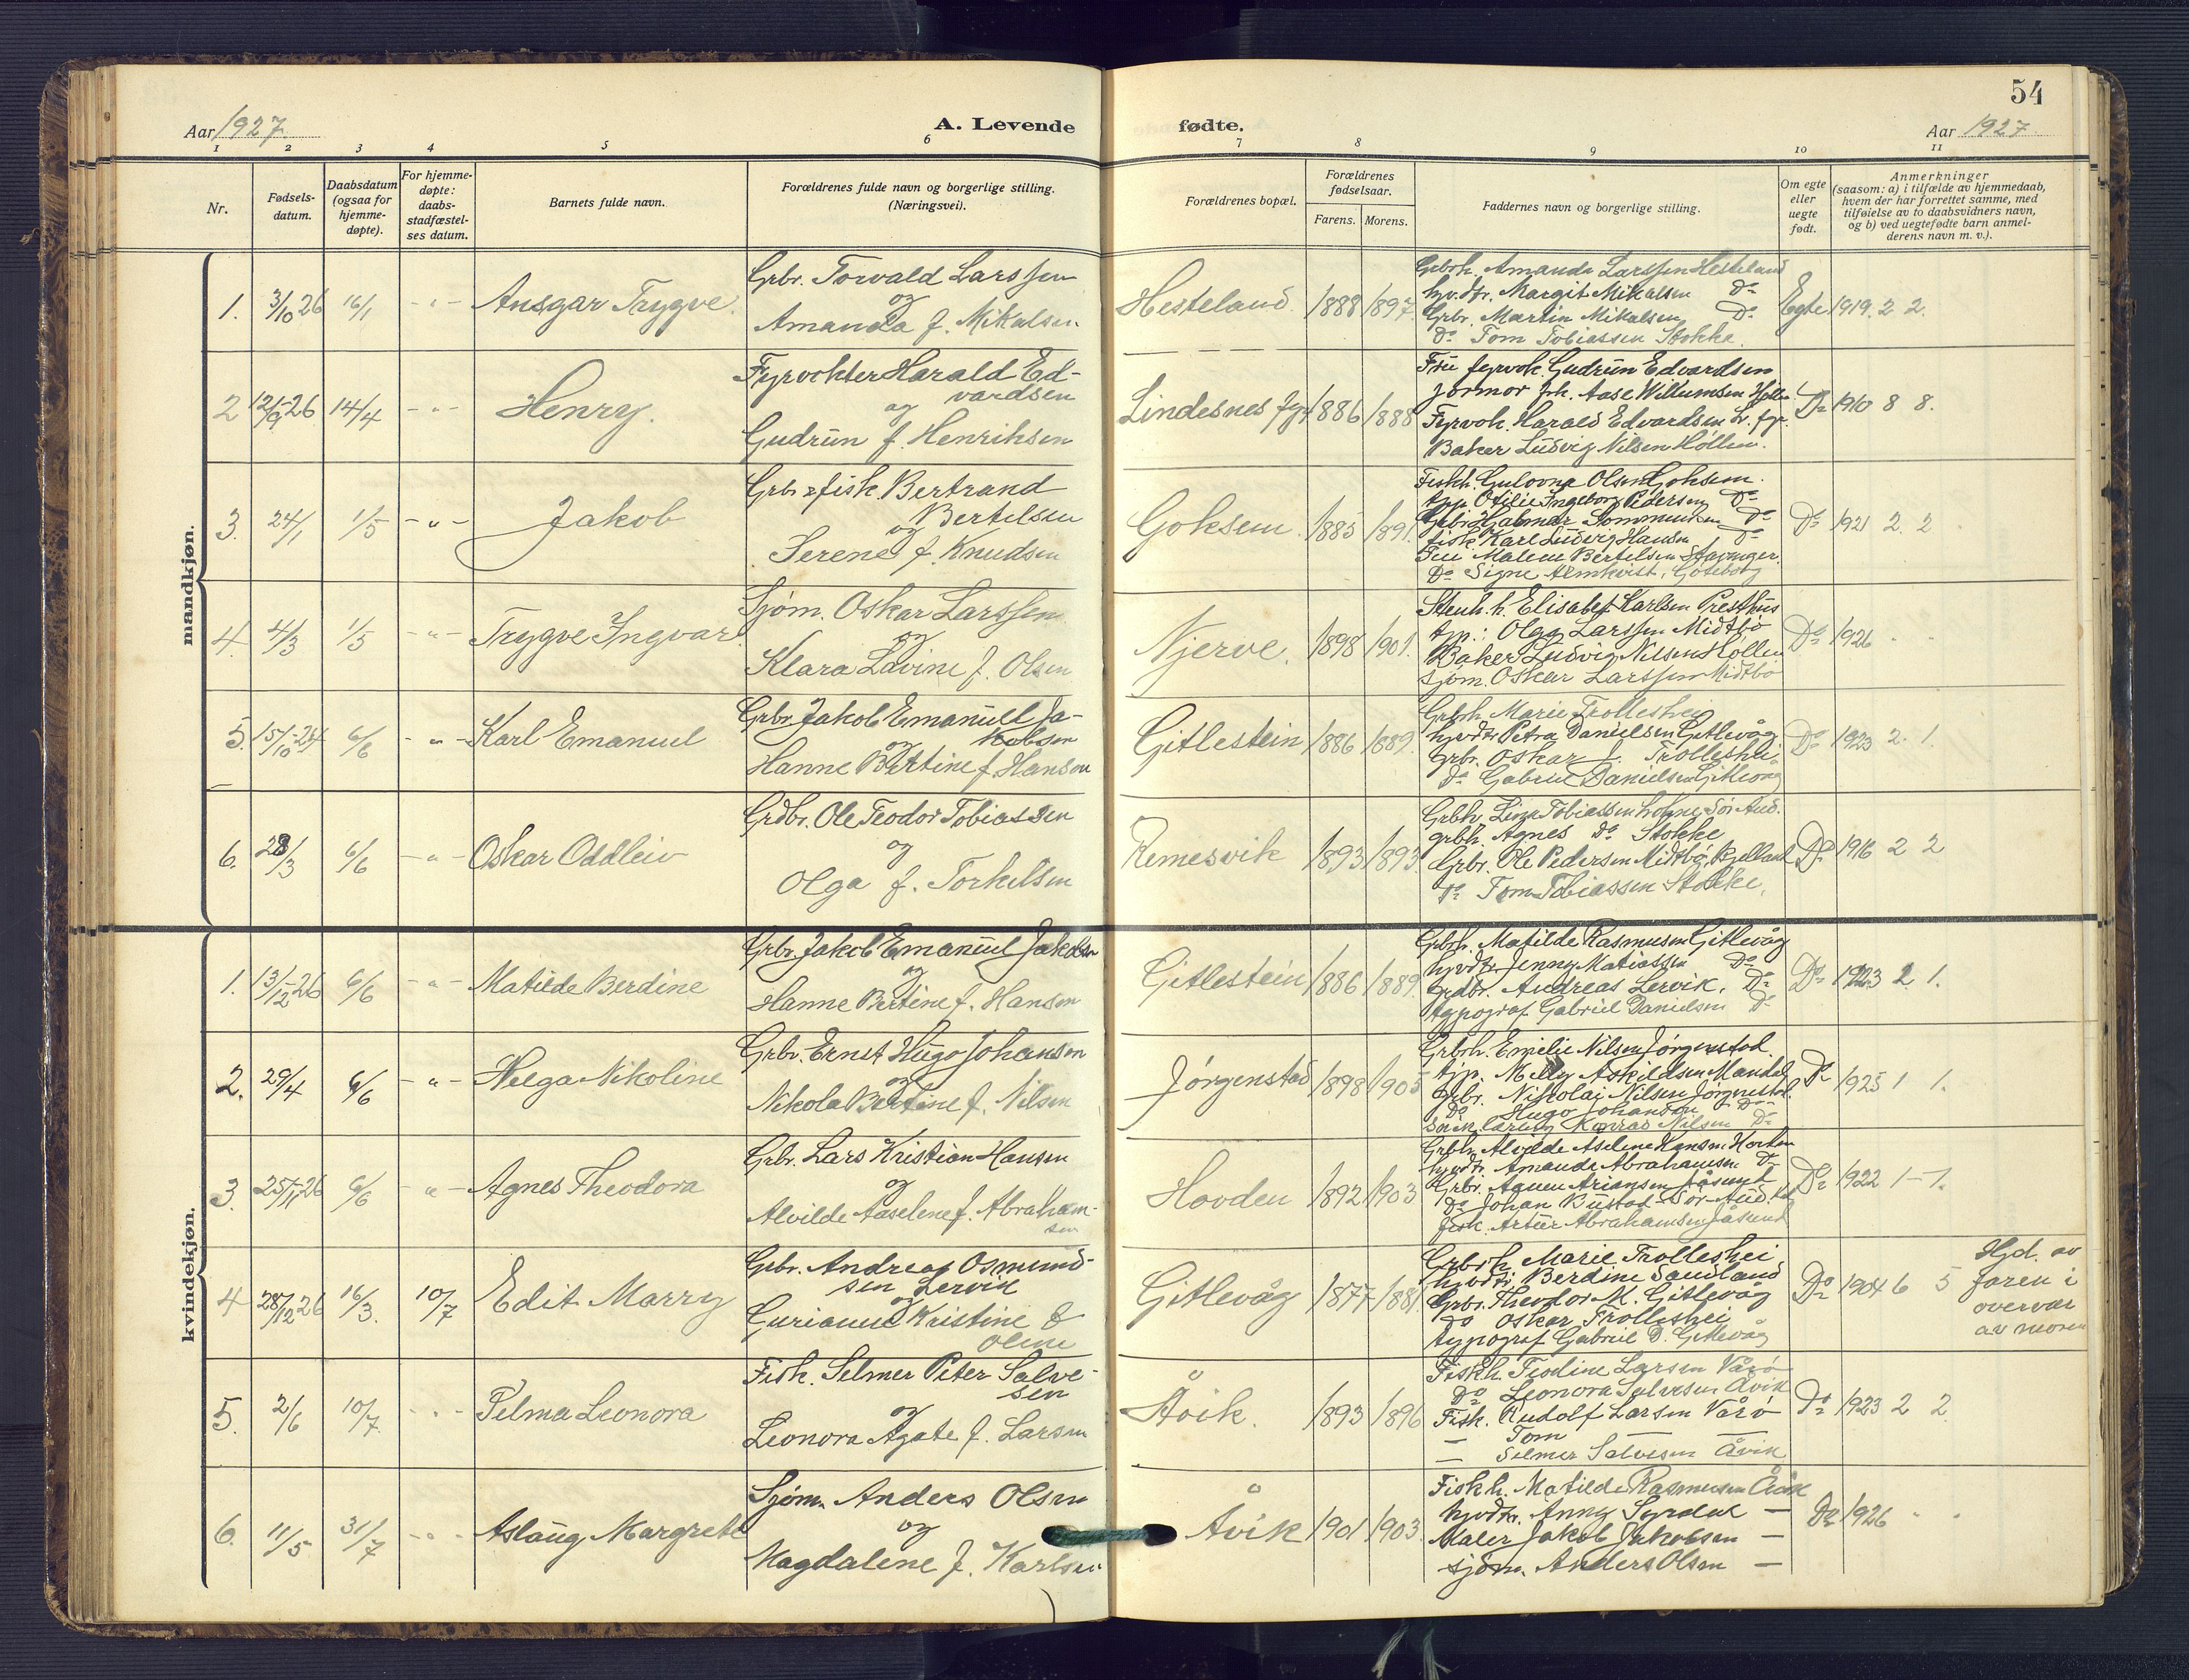 54
Aar 1927.
A. Levende fødte.
Aar 1927.
1 2 3 4 5 6 7 8 9 10 11
Nr.
Fødsels-
datum.
Daabsdatum
(ogsaa for
hjemme-
døpte).
For hjemme-
døpte:
daabs-
stadfæstel-
ses datum.
Barnets fulde navn.
Forældrenes fulde navn og borgerlige stilling.
(Næringsvei).
Forældrenes bopæl.
Forældrenes
fødselsaar.
Farens. Morens.
Faddernes navn og borgerlige stilling.
Om egte
eller
uegte
født.
Anmerkninger
(saasom: a) i tilfælde av hjemmedaab,
hvem der har forrettet samme, med
tilføielse av to daabsvidners navn,
og b) ved uegtefødte barn anmel-
derens navn m. v.).
mandkjøn.
1. 3/10 26 16/1 - " - Ansgar Trygve.
Grbr. Torvald Larssen
og
Amanda f. Mikalsen
Hesteland. 1888 1897.
Grbrh. Amanda Larssen Hesteland
hjv.dtr. Margit Mikalsen Do
Grbr. Martin Mikalsen Do
Do Tom Tobiassen Stokke.
Egte 1919. 2 2.
2 12/9 26 14/4 - " - Henry.
Fyrvokter Harald Ed-
vardsen
og
Gudrun f. Henriksen
Lindesnes fyr 1886 1888
Fru fyrvok. Gudrun Edvardsen
Jormor frk. Aase Willumsen
Fyrvok. Harald Edvardsen L. fyr.
Baker Ludvig Nilsen Hollen.
Do 1910 8 8.
3. 24/1 1/5 - " - Jakob
Grbr & fisk. Bertrand
Bertelsen
og
Serene f. Knudsen
Goksem. 1885 1891.
Fiskh. Gulovna Olsen Goksem.
tjp. Otilie Ingeborg Pedersen Do
Grbr Halmar Do
fisk. Karl Ludvig Hansen Do
Fru Malene Bertelsen Stavanger.
Do Signe Almkvist, Göteborg
Do 1921 2. 2
4. 4/3 1/5 - " - Trygve Ingvar
Sjøm. Oskar Larssen
og
Klara Lovine f. Olsen
Njerve. 1898 1901.
Stenh. h. Elisabet Karlsen Presthus
tjp.: Olga Larssen Midtbø
Baker Ludvig Nilsen Hollen
Sjøm. Oskar Larssen Midtbø
Do 1926 " "
5. 15/10-24 6/6 - " - Karl Emanuel
Grbr. Jakob Emanuel Ja-
kobsen
og
Hanne Bertine f. Hansen
Gitlestein 1886 1889.
Grbrh. Marie Trolleshei
hjvdtr Petra Danielsen Gitlevåg
Grbr. Oskar J. Trolleshei
Do Gabriel Danielsen Gitlevåg
Do 1923 2. 1.
6. 28/3 6/6 - " - Oskar Oddleiv
Grdbr. Ole Teodor Tobiassen
og
Olga f. Torkelsen
Remesvik 1893 1893.
Grbh. Lina Tobiassen Sør Aud.
grbh. Agnes Do Stokke
Grbr. Ole Pedersen Midtbø,
Do Tom Tobiassen Stokke.
Do 1916 2 2
kvindekjøn.
1. 13/12-26 6/6 - " - Matilde Berdine
Grbr. Jakob Emanuel Jakobsen
og
Hanne Bertine f. Hansen
Gitlestein 1886 1889.
Grbrh. Matilde Rasmussen Gitlevåg
hjvdtr. Jenny Matiassen Do
Grdbr. Andreas Lervik. Do
typograf Gabriel Danielsen Do
Do 1923 2. 1.
2. 29/4 6/6 - " - Helga Nikoline
Grbr. Ernst Hugo Johansen
og
Nikola Bertine f. Nilsen
Jørgenstad 1898 1905
Grbrh. Emelie Nilsen Jørgenstad.
tjp. Milly Askildsen Mandal
Grbr. Nikolai Nilsen Jørgenstad.
Do Hugo Johansen Do
Konrad Nilsen Do
Do 1925 1 1.
3. 25/11 26 6/6 - " - Agnes Theodora
Grbr. Lars Kristian Hansen
og
Alvilde Aaselene f. Abraham-
sen
Hovden 1892 1903
Grbrh. Alvilde Aselene Hansen
hjvdtr. Amanda Abrahamsen Do
Grbr. Ariansen Jåsund
Do Johan Bustad Sør-Aud.
fisk. Artur Abrahamsen Jåsund
Do 1922 1 - 1.
4 28/12 26 16/3. 10/7 Edit Marry
Grbr. Andreas Osmund-
sen Lervik
og
Guriane Kristine f
Olene
Gitlevåg 1877 1881
Grbrh. Marie Trolleshei
hjvdtr Berdine Sandland
Grbr. Theodor M. Gitlevåg
Do Oskar Trolleshei
typograf Gabriel D. Gitlevåg
Do 1904 6 5
Hjd. av
faren i
overvær
av moren
5. 2/6 10/7. - " - Pelma Leonora
Fisk. Selmer Peter Salve-
sen
og
Leonora Agate f. Larsen
Åvik. 1893 1896
Fiskh. Teodine Larsen Vårø
Do Leonora Salvesen Åvik
Fisk. Rudolf Larsen Vårø
— Tom —
— Selmer Salvesen Åvik
Do 1923 2 2.
6. 11/5 31/7 - " - Aslaug Margrete
Sjøm. Anders Olsen
og
Magdalene f. Karlsen
Åvik 1901 1903.
Fiskh. Matilde Rasmussen Åvik
hjvdtr. Anny Syrdal —
Maler Jakob Jakobsen —
sjøm. Anders Olsen —
Do 1926 " "